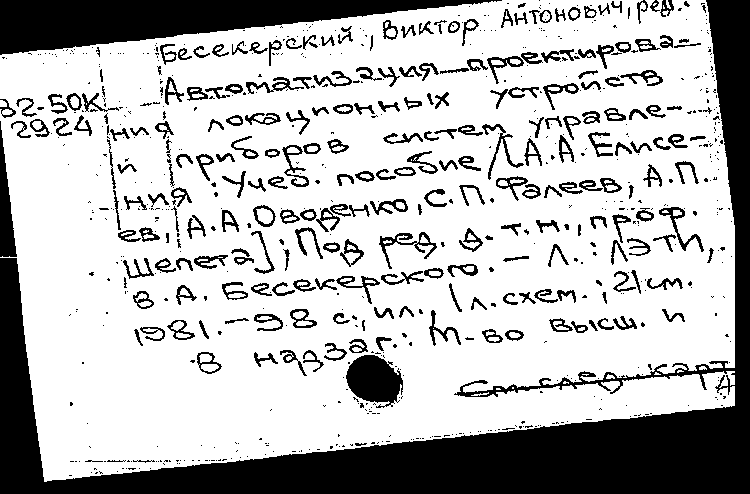 Бесекерский, Виктор Антонович, ред.
Автоматизация проектирова-
82-50К ния локационных устройств
2924 и приборов систем управле-
ния : Учеб. пособие / [А.А. Елисе-
ев, А.А. Оводенко, С.П. Фалеев, А.П.
Шепета] ; Под ред. д.т.н., проф.
В.А. Бесекерского. — Л. : ЛЭТИ,
1981. — 98 с., ил., 1 л. схем. ; 21 см.
В надзаг.: М-во высш. и
См. след. карт
А